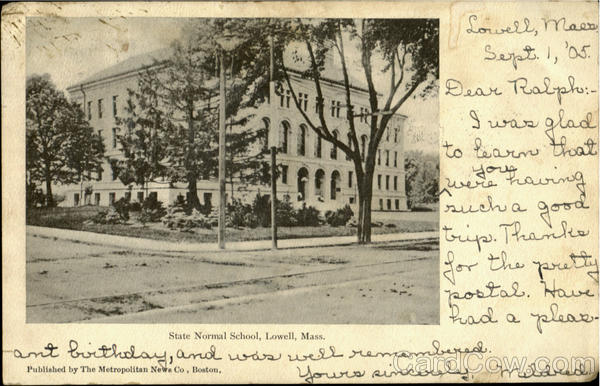 Lowell, Mass
Sept. 1, '05.
Dear Ralph:-
I was glad
to learn that
you
were having
such a good
trip. Thanks
for the pretty
postal. Have
had a pleas-
State Normal School, Lowell, Mass.
ant birthday, and was well remembered.
Published by The Metropolitan News Co, Boston,
Yours sincerely, Mildred
CardCow.com